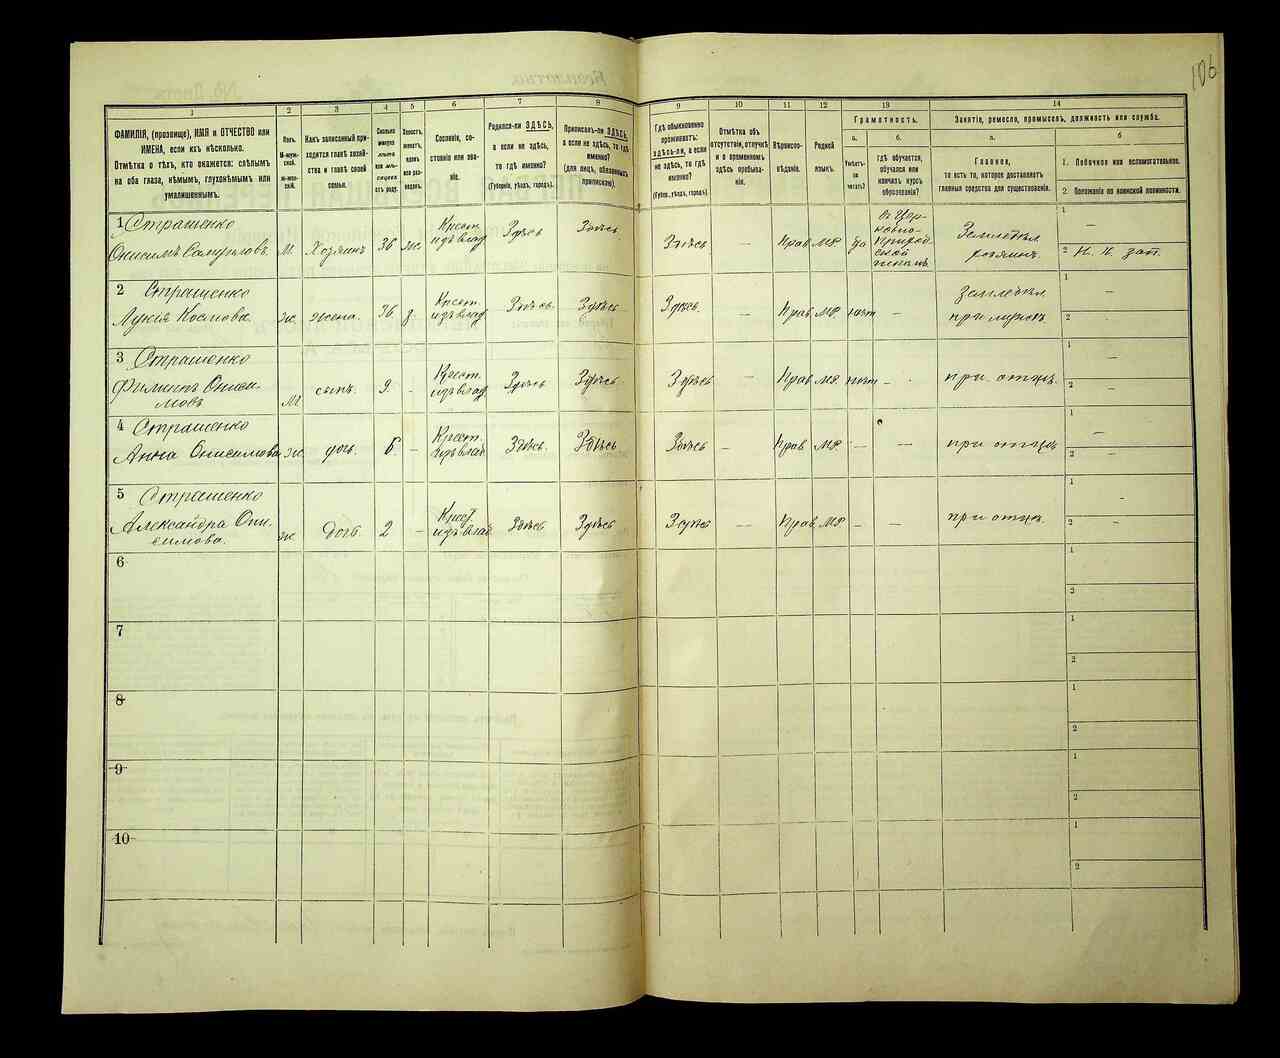 106
1
2
3
4
5
6
7
8
ФАМИЛІЯ, (прозвище), ИМЯ и ОТЧЕСТВО или
ИМЕНА, если ихъ нѣсколько.
Отмѣтка о тѣхъ, кто окажется: слѣпымъ
на оба глаза, нѣмымъ, глухонѣмымъ или
умалишеннымъ.
Полъ.
М-муж-
ской.
Ж-жен-
скій.
Какъ записанный при-
ходится главѣ хозяй-
ства и главѣ своей
семьи.
Сколько
минуло
лѣтъ
или мѣ-
сяцевъ
отъ роду.
Холостъ,
женатъ,
вдовъ
или раз-
веденъ.
Сословіе, со-
стояніе или зва-
ніе.
Родился-ли ЗДѢСЬ,
а если не здѣсь,
то гдѣ именно?
(Губернія, уѣздъ, городъ).
Приписанъ-ли ЗДѢСЬ,
а если не здѣсь, то гдѣ
именно?
(для лицъ, обязанныхъ
припискою).
9
10
11
12
13
14
Гдѣ обыкновенно
проживаетъ:
здѣсь-ли, а если
не здѣсь, то гдѣ
именно?
(Губер., уѣздъ, городъ).
Отмѣтка объ
отсутствіи, отлучкѣ
и о временномъ
здѣсь пребыва-
ніи.
Вѣроиспо-
вѣданіе.
Родной
языкъ.
Грамотность.
а.
Умѣетъ-
ли
читать?
б.
гдѣ обучается,
обучался или
кончилъ курсъ
образованія?
Занятіе, ремесло, промыселъ, должность или служба.
а.
Главное,
то есть то, которое доставляетъ
главныя средства для существованія.
б
1. Побочное или вспомогательное.
2. Положеніе по воинской повинности.
1 Страшенко
Онисимъ Самуиловъ. М. Хозяинъ 36 же. Крест. Здѣсь Здѣсь. Здѣсь — Прав МР. да
Земледѣл. хозяинъ. 1 —
2 Н. Н. зап.
2 Страшенко
Лукія Космовна ж. жена. 36 з. Крест. Здѣсь. Здѣсь. Здѣсь. — Прав МР. нѣт —
Земледѣл. при мужѣ. 1 —
2 .
3 Страшенко
Филиппъ Ониси-
мовъ М сынъ 9. — Крест. Здѣсь Здѣсь. Здѣсь — Прав МР. нѣт — при отцѣ. 1 —
2 —
4 Страшенко
Анна Онисимова ж. доч. 6. — Крест. Здѣсь. Здѣсь Здѣсь — Прав МР — — при отцѣ 1 —
2 —
5 Страшенко
Александра Они-
симова. ж. Дочь. 2 — Крест. Здѣсь Здѣсь Здѣсь — Прав МР. — — при отцѣ. 1 -
2 —
6
1
2
7
1
2
8
1
2
9
1
2
10
1
2